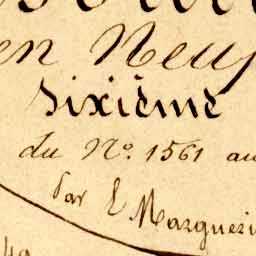 en Neuf
Sixième
du N.o 1561 au
Par E Margueri